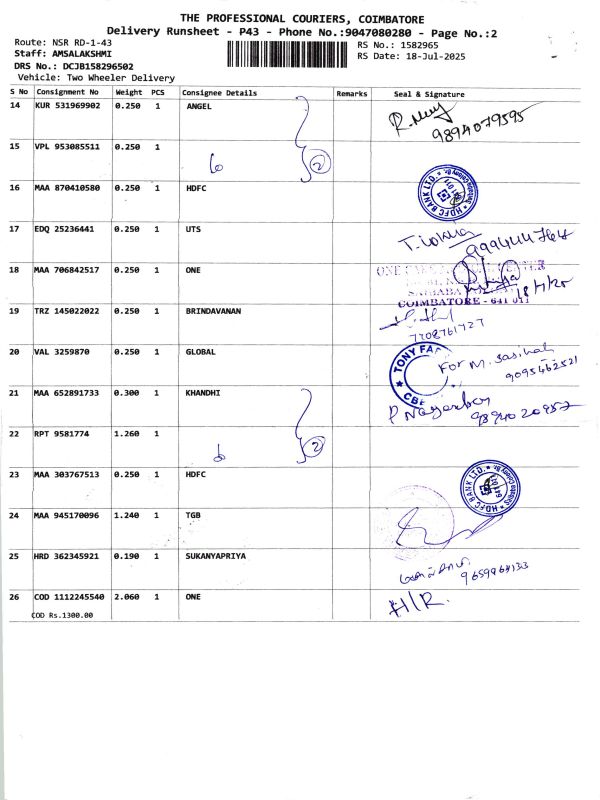 THE PROFESSIONAL COURIERS, COIMBATORE
Delivery Runsheet - P43 - Phone No.:9047080280 - Page No.:2
Route: NSR RD-1-43
RS No.: 1582965
Staff: AMSALAKSHMI
RS Date: 18-Jul-2025
DRS No.: DCJB158296502
Vehicle: Two Wheeler Delivery
S No Consignment No Weight PCS Consignee Details Remarks Seal & Signature
14 KUR 531969902 0.250 1 ANGEL
9894079595
15 VPL 953085511 0.250 1
2
16 MAA 870410580 0.250 1 HDFC
HDFC BANK LTD.
17 EDQ 25236441 0.250 1 UTS
18 MAA 706842517 0.250 1 ONE
18/7/25
COIMBATORE - 641 011
19 TRZ 145022022 0.250 1 BRINDAVANAN
7708761727
20 VAL 3259870 0.250 1 GLOBAL
TONY
For M.
9095462521
21 MAA 652891733 0.300 1 KHANDHI
9894020957
22 RPT 9581774 1.260 1
2
23 MAA 303767513 0.250 1 HDFC
HDFC BANK LTD.
24 MAA 945170096 1.240 1 TGB
25 HRD 362345921 0.190 1 SUKANYAPRIYA
26 COD 1112245540 2.060 1 ONE
H/R.
COD Rs.1300.00